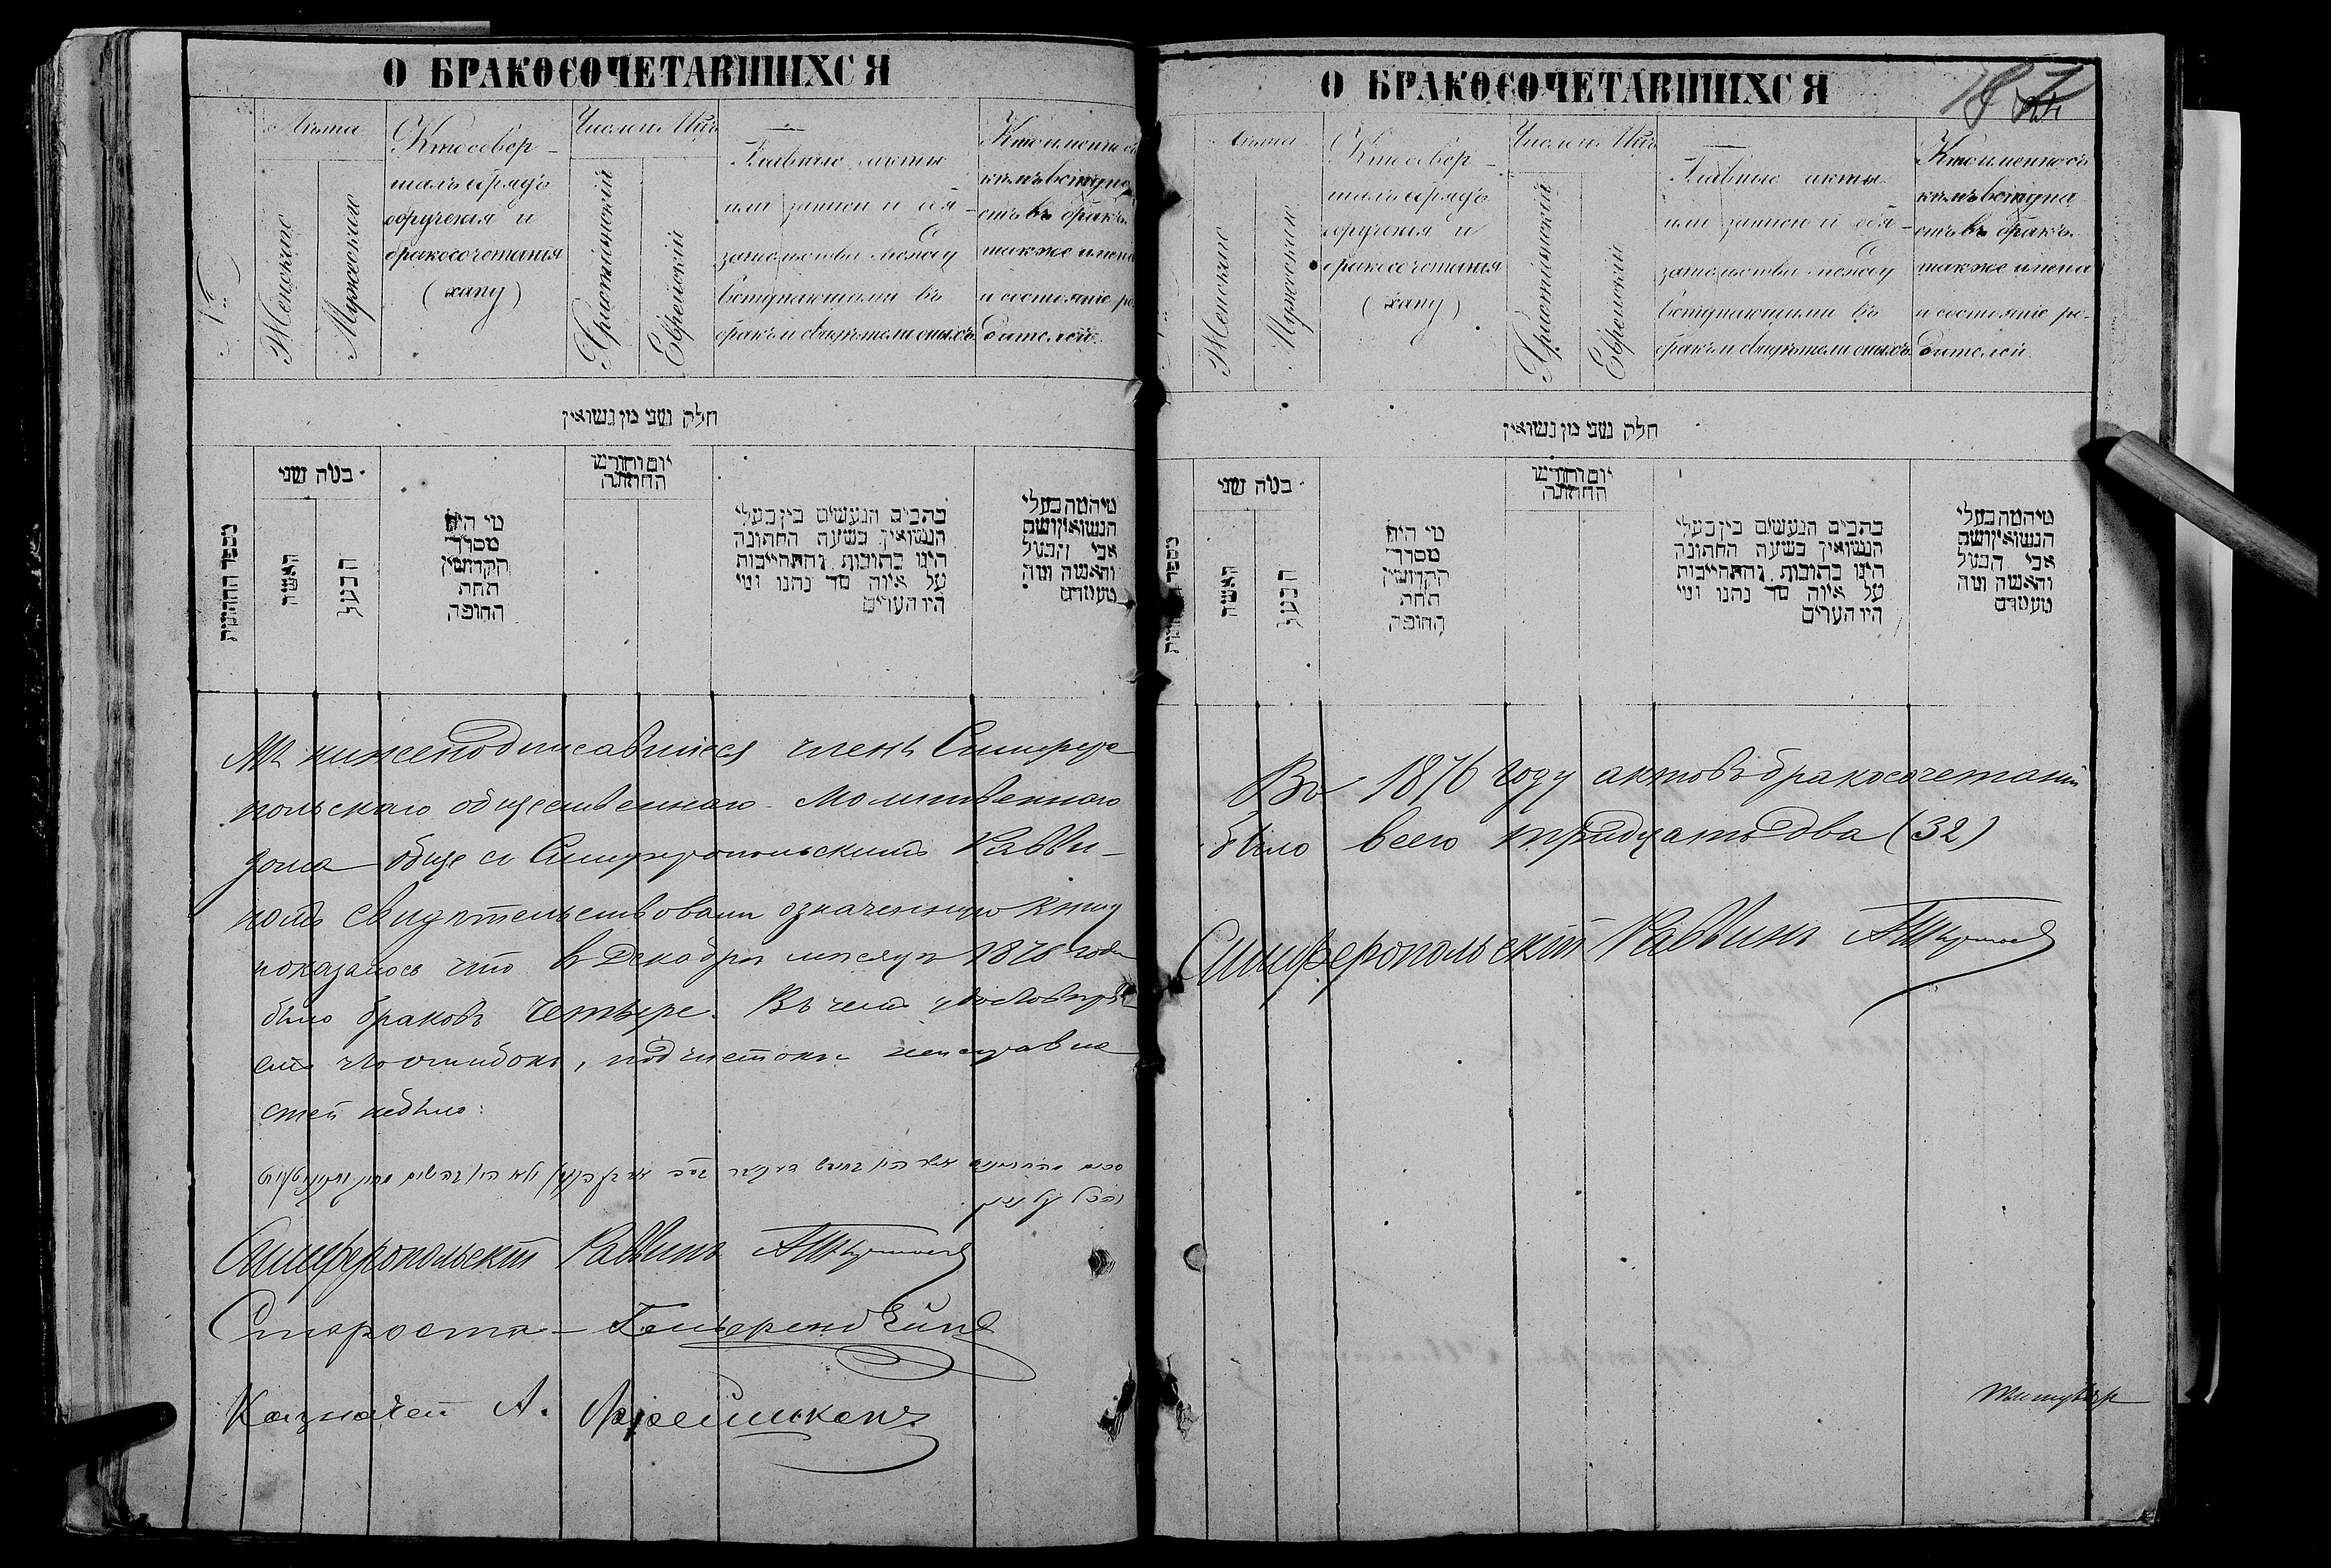 О БРАКОСОЧЕТАВШИХСЯ
№
Лѣта
Женскіе
Мужескіе
Кто совер-
шалъ обрядъ
обрученія и
бракосочетанія
(хапу)
Число и Мѣс
Христіанскій
Еврейскій
Главные акты
или записи и обя-
зательства между
вступающими въ
бракъ и свидѣтели оныхъ
Кто именно съ
кѣмъ вступа
етъ въ бракъ
также имена
и состояніе ро
дителей
חלק שני מן נשואין
מספר החתונות
בטה שני
האשה
הבעל
מי היה
מסדר
הקדושין
תחת
החופה
יום וחודש
החתונה
כתבים הנעשים בין בעלי
הנשואין בשעת החתונה
היינו כתובות והתחייבות
על איזה סך נתנו ומי
היו העדים
מי המה בעלי
הנשואין ושם
אבי הבעל
והאשה ומה
מעמדם
Мы нижеподписавшіеся членъ Симферо
польскаго общественнаго Молитвеннаго
дома обще съ Симферопольскимъ Равви-
номъ свидѣтельствовали означенную книгу
показалось что въ Декабрѣ мѣсяцѣ 1876 года
было браковъ четыре. Въ чемъ удостовѣря
емъ что ошибокъ, подчистокъ и неисправно
стей небыло:
Симферопольскій Раввинъ
Староста
Казначей А.
О БРАКОСОЧЕТАВШИХСЯ
187
Лѣта
Женскіе
Мужескіе
Кто совер-
шалъ обрядъ
обрученія и
бракосочетанія
(хапу)
Число и Мѣс
Христіанскій
Еврейскій
Главные акты
или записи и обя-
зательства между
вступающими въ
бракъ и свидѣтели оныхъ
Кто именно съ
кѣмъ вступа
етъ въ бракъ
также имена
и состояніе ро-
дителей
חלק שני מן נשואין
בטה שני
האשה
הבעל
מי היה
מסדר
הקדושין
תחת
החופה
יום וחודש
החתונה
כתבים הנעשים בין בעלי
הנשואין בשעת החתונה
היינו כתובות והתחייבות
על איזה סך נתנו ומי
היו העדים
מי המה בעלי
הנשואין ושם
אבי הבעל
והאשה ומה
מעמדם
Въ 1876 году актовъ бракосочетаній
было всего тридцать два (32)
Симферопольскій Раввинъ